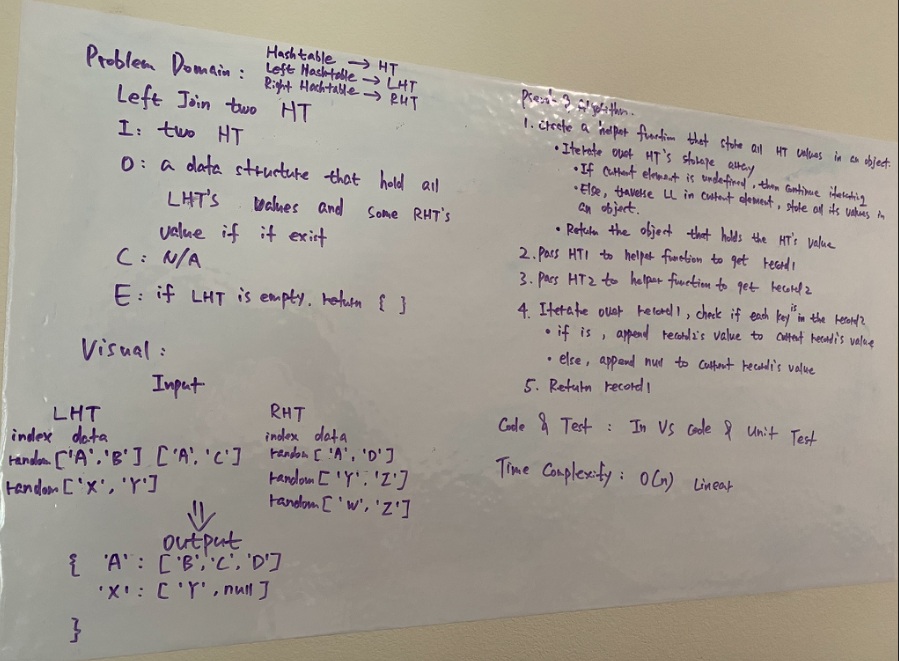 Problem Domain:
Hashtable → HT
Left Hashtable → LHT
Right Hashtable → RHT
Left Join two HT
I: two HT
O: a data structure that hold all
LHT's values and some RHT's
value if if exist
C: N/A
E: if LHT is empty. return { }
Visual:
Input
LHT
index data
random ['A','B'] ['A','C']
random ['X','Y']
RHT
index data
random ['A','D']
random ['Y','Z']
random ['W','Z']
output
{ 'A': ['B','C','D']
'X': ['Y',null]
}
Pseudo & algorithm.
1. Create a helper function that store all HT values in an object.
• Iterate over HT's storage array
• If current element is undefined, then continue iterating
• Else, traverse LL in current element, store all its values in
an object.
• Return the object that holds the HT's value
2. Pass HT1 to helper function to get record1
3. Pass HT2 to helper function to get record2
4. Iterate over record1, check if each key is in the record2
• if is, append record2's value to current record1's value
• else, append null to current record1's value
5. Return record1
Code & Test: In VS Code & Unit Test
Time Complexity: O(n) Linear